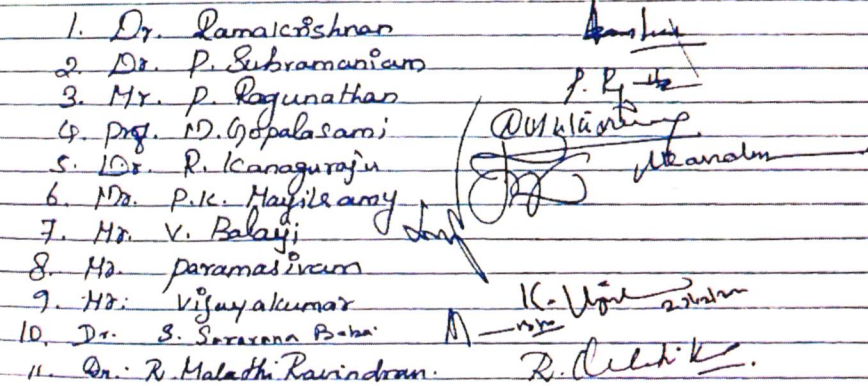 1. Dr. Ramakrishnan
2. Dr. P. Subramaniam
3. Mr. P. Ragunathan P. R
4. Prof. N. Gopalasami
5. Dr. R. Kanaguraju
6. Mr. P.K. Mayilsamy
7. Mr. V. Balaji
8. Mr. paramasivam
9. Mr. Vijuyakumar K.
10. Dr. S. Saravana Baba
11. Dr. R. Malathi Ravindran. R.